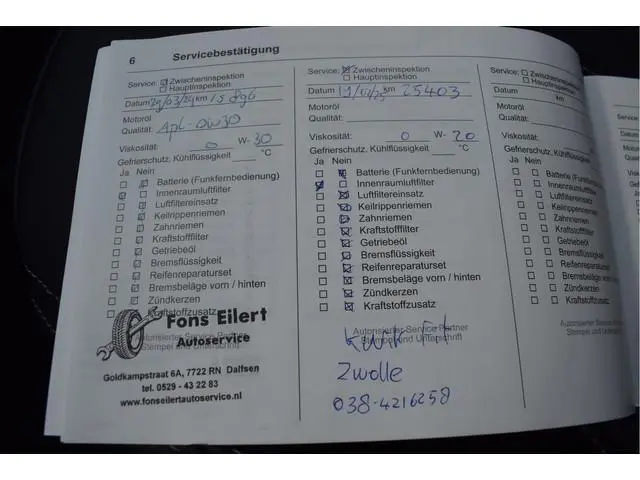 6 Servicebestätigung
Service: Zwischeninspektion
Hauptinspektion
Datum 29/03/24 km 15896
Motoröl
Qualität: Apl-0W30
Viskosität: 0 W- 30
Gefrierschutz, Kühlflüssigkeit °C
Ja Nein
Batterie (Funkfernbedienung)
Innenraumluftfilter
Luftfiltereinsatz
Keilrippenriemen
Zahnriemen
Kraftstofffilter
Getriebeöl
Bremsflüssigkeit
Reifenreparaturset
Bremsbeläge vorn / hinten
Zündkerzen
Kraftstoffzusatz
Fons Eilert
Autoservice
Autorisierter Service Partner
Stempel und Unterschrift
Goldkampstraat 6A, 7722 RN Dalfsen
tel. 0529 - 43 22 83
www.fonseilertautoservice.nl
Service: Zwischeninspektion
Hauptinspektion
Datum km 25403
Motoröl
Qualität:
Viskosität: 0 W- 20
Gefrierschutz, Kühlflüssigkeit °C
Ja Nein
Batterie (Funkfernbedienung)
Innenraumluftfilter
Luftfiltereinsatz
Keilrippenriemen
Zahnriemen
Kraftstofffilter
Getriebeöl
Bremsflüssigkeit
Reifenreparaturset
Bremsbeläge vorn / hinten
Zündkerzen
Kraftstoffzusatz
Autorisierter Service Partner
Stempel und Unterschrift
Kwik Fit
Zwolle
038-4216258
Service: Zwischeninspektion
Hauptinspektion
Datum km
Motoröl
Qualität:
Viskosität:
Gefrierschutz, Kühlflüssigkeit
Ja Nein
Batterie (Funkfernbedienung)
Innenraumluftfilter
Luftfiltereinsatz
Keilrippenriemen
Zahnriemen
Kraftstofffilter
Getriebeöl
Bremsflüssigkeit
Reifenreparaturset
Bremsbeläge vorn
Zündkerzen
Kraftstoffzusatz
Autorisierter Service
Stempel und Unter